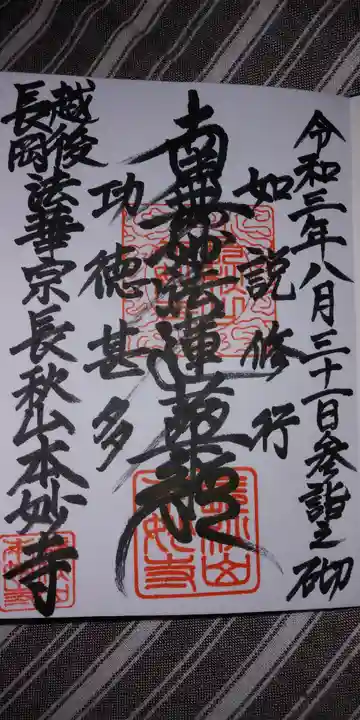 令和三年八月三十一日参詣之砌
如説修行
南無妙法蓮華経
功徳甚多
越後
長岡
法華宗長秋山本妙寺